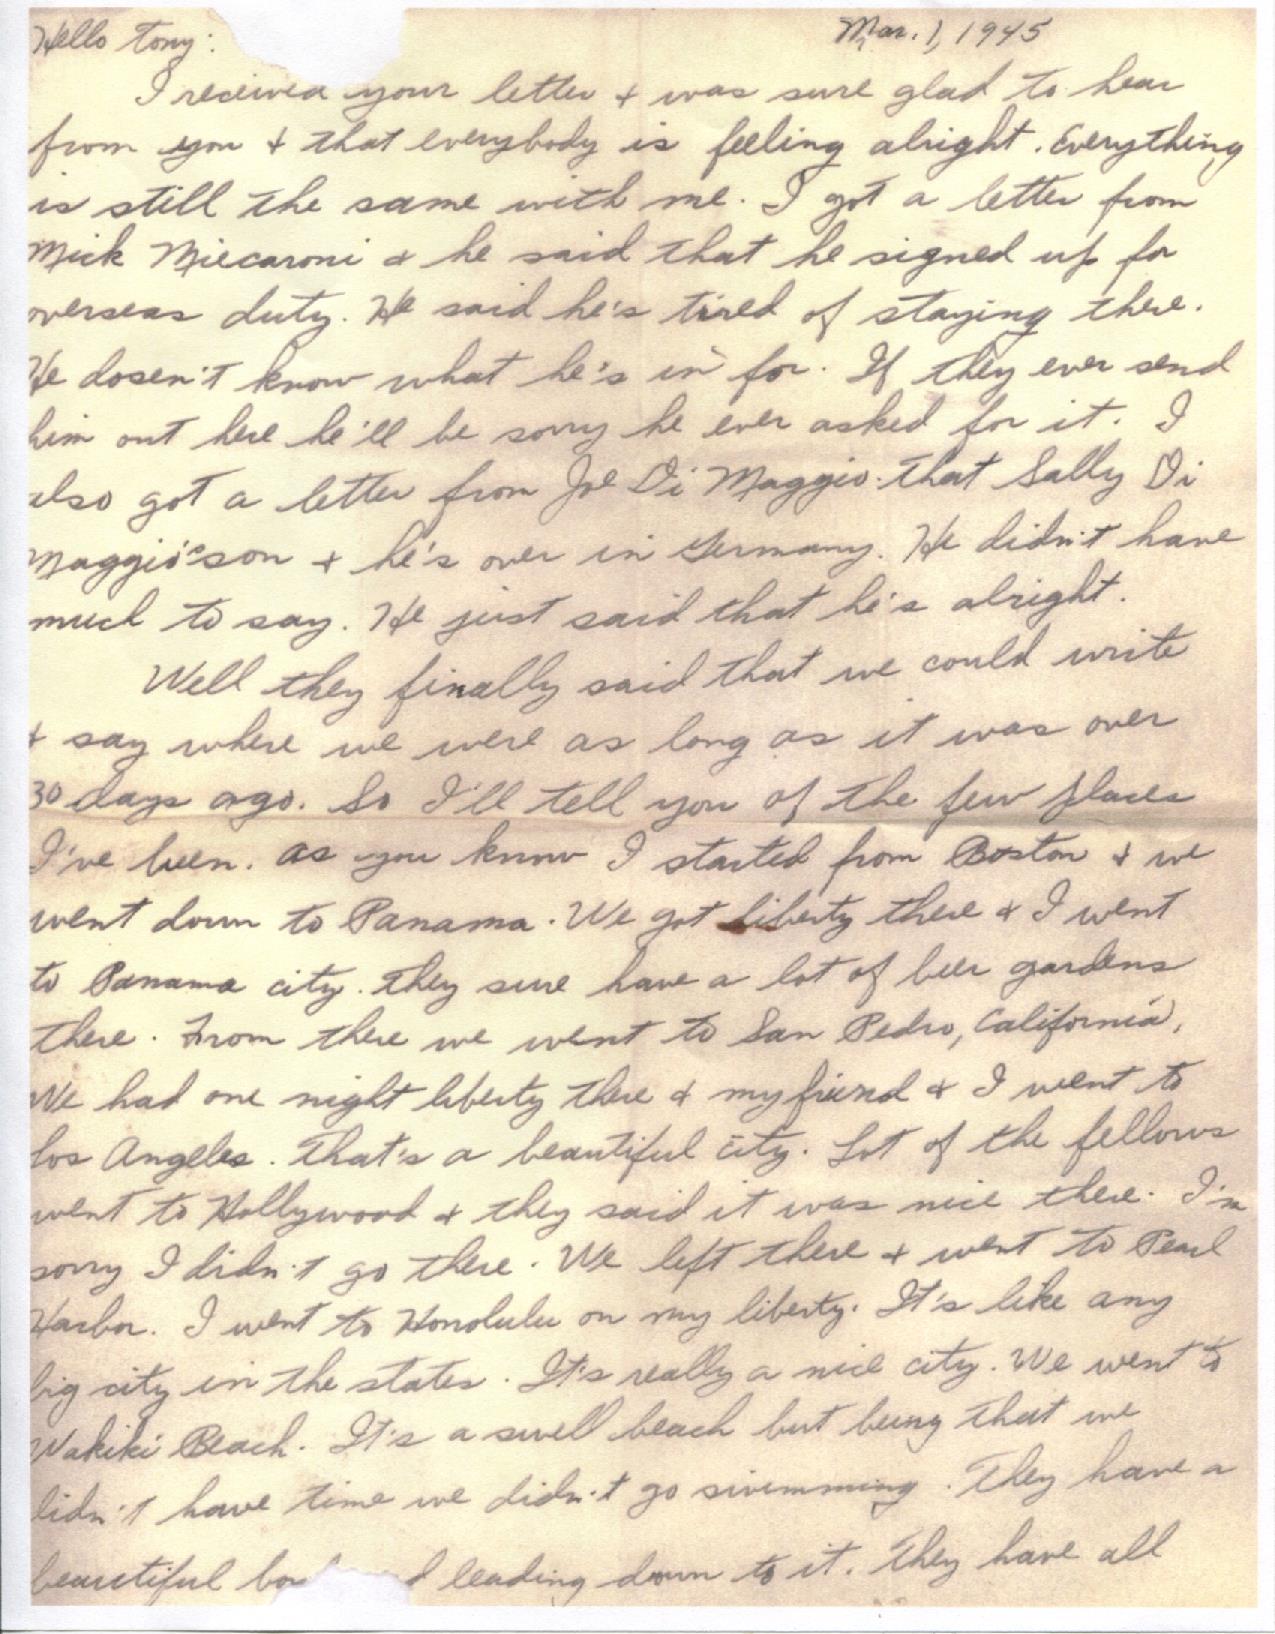 Hello Tony: Mar. 1, 1945
I received your letter & was sure glad to hear
from you & that everybody is feeling alright. Everything
is still the same with me. I got a letter from
Mick Miecaroni & he said that he signed up for
overseas duty. He said he's tired of staying there.
He dosen't know what he's in for. If they ever send
him out here he'll be sorry he ever asked for it. I
also got a letter from Joe Di Maggio that Sally Di
Maggio's son & he's over in Germany. He didn't have
much to say. He just said that he's alright.
Well they finally said that we could write
& say where we were as long as it was over
30 days ago. So I'll tell you of the few places
I've been. As you know I started from Boston & we
went down to Panama. We got liberty there & I went
to Panama city. They sure have a lot of beer gardens
there. From there we went to San Pedro, California,
We had one night liberty there & my friend & I went to
Los Angeles. That's a beautiful city. Lot of the fellows
went to Hollywood & they said it was nice there. I'm
sorry I didn't go there. We left there & went to Pearl
Harbor. I went to Honolulu on my liberty. It's like any
big city in the states. It's really a nice city. We went to
Wakiki Beach. It's a swell beach but being that we
didn't have time we didn't go swimming. They have a
beautiful bou d leading down to it. They have all